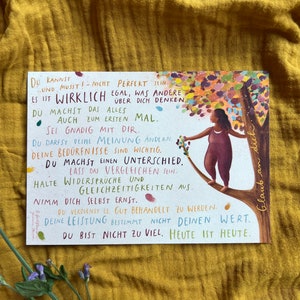 Du kannst
– und musst! – nicht perfekt sein.
Es ist WIRKLICH egal, was andere
über dich denken.
Du machst das alles
auch zum ersten Mal.
Sei gnädig mit dir.
Du darfst deine Meinung ändern.
Deine Bedürfnisse sind wichtig.
Du machst einen Unterschied.
Lass das Vergleichen sein.
Halte Widersprüche und
Gleichzeitigkeiten aus.
Nimm dich selbst ernst.
Du verdienst es gut behandelt zu werden.
Deine Leistung bestimmt nicht deinen Wert.
Du bist nicht zu viel. Heute ist heute.
Glaub an dich